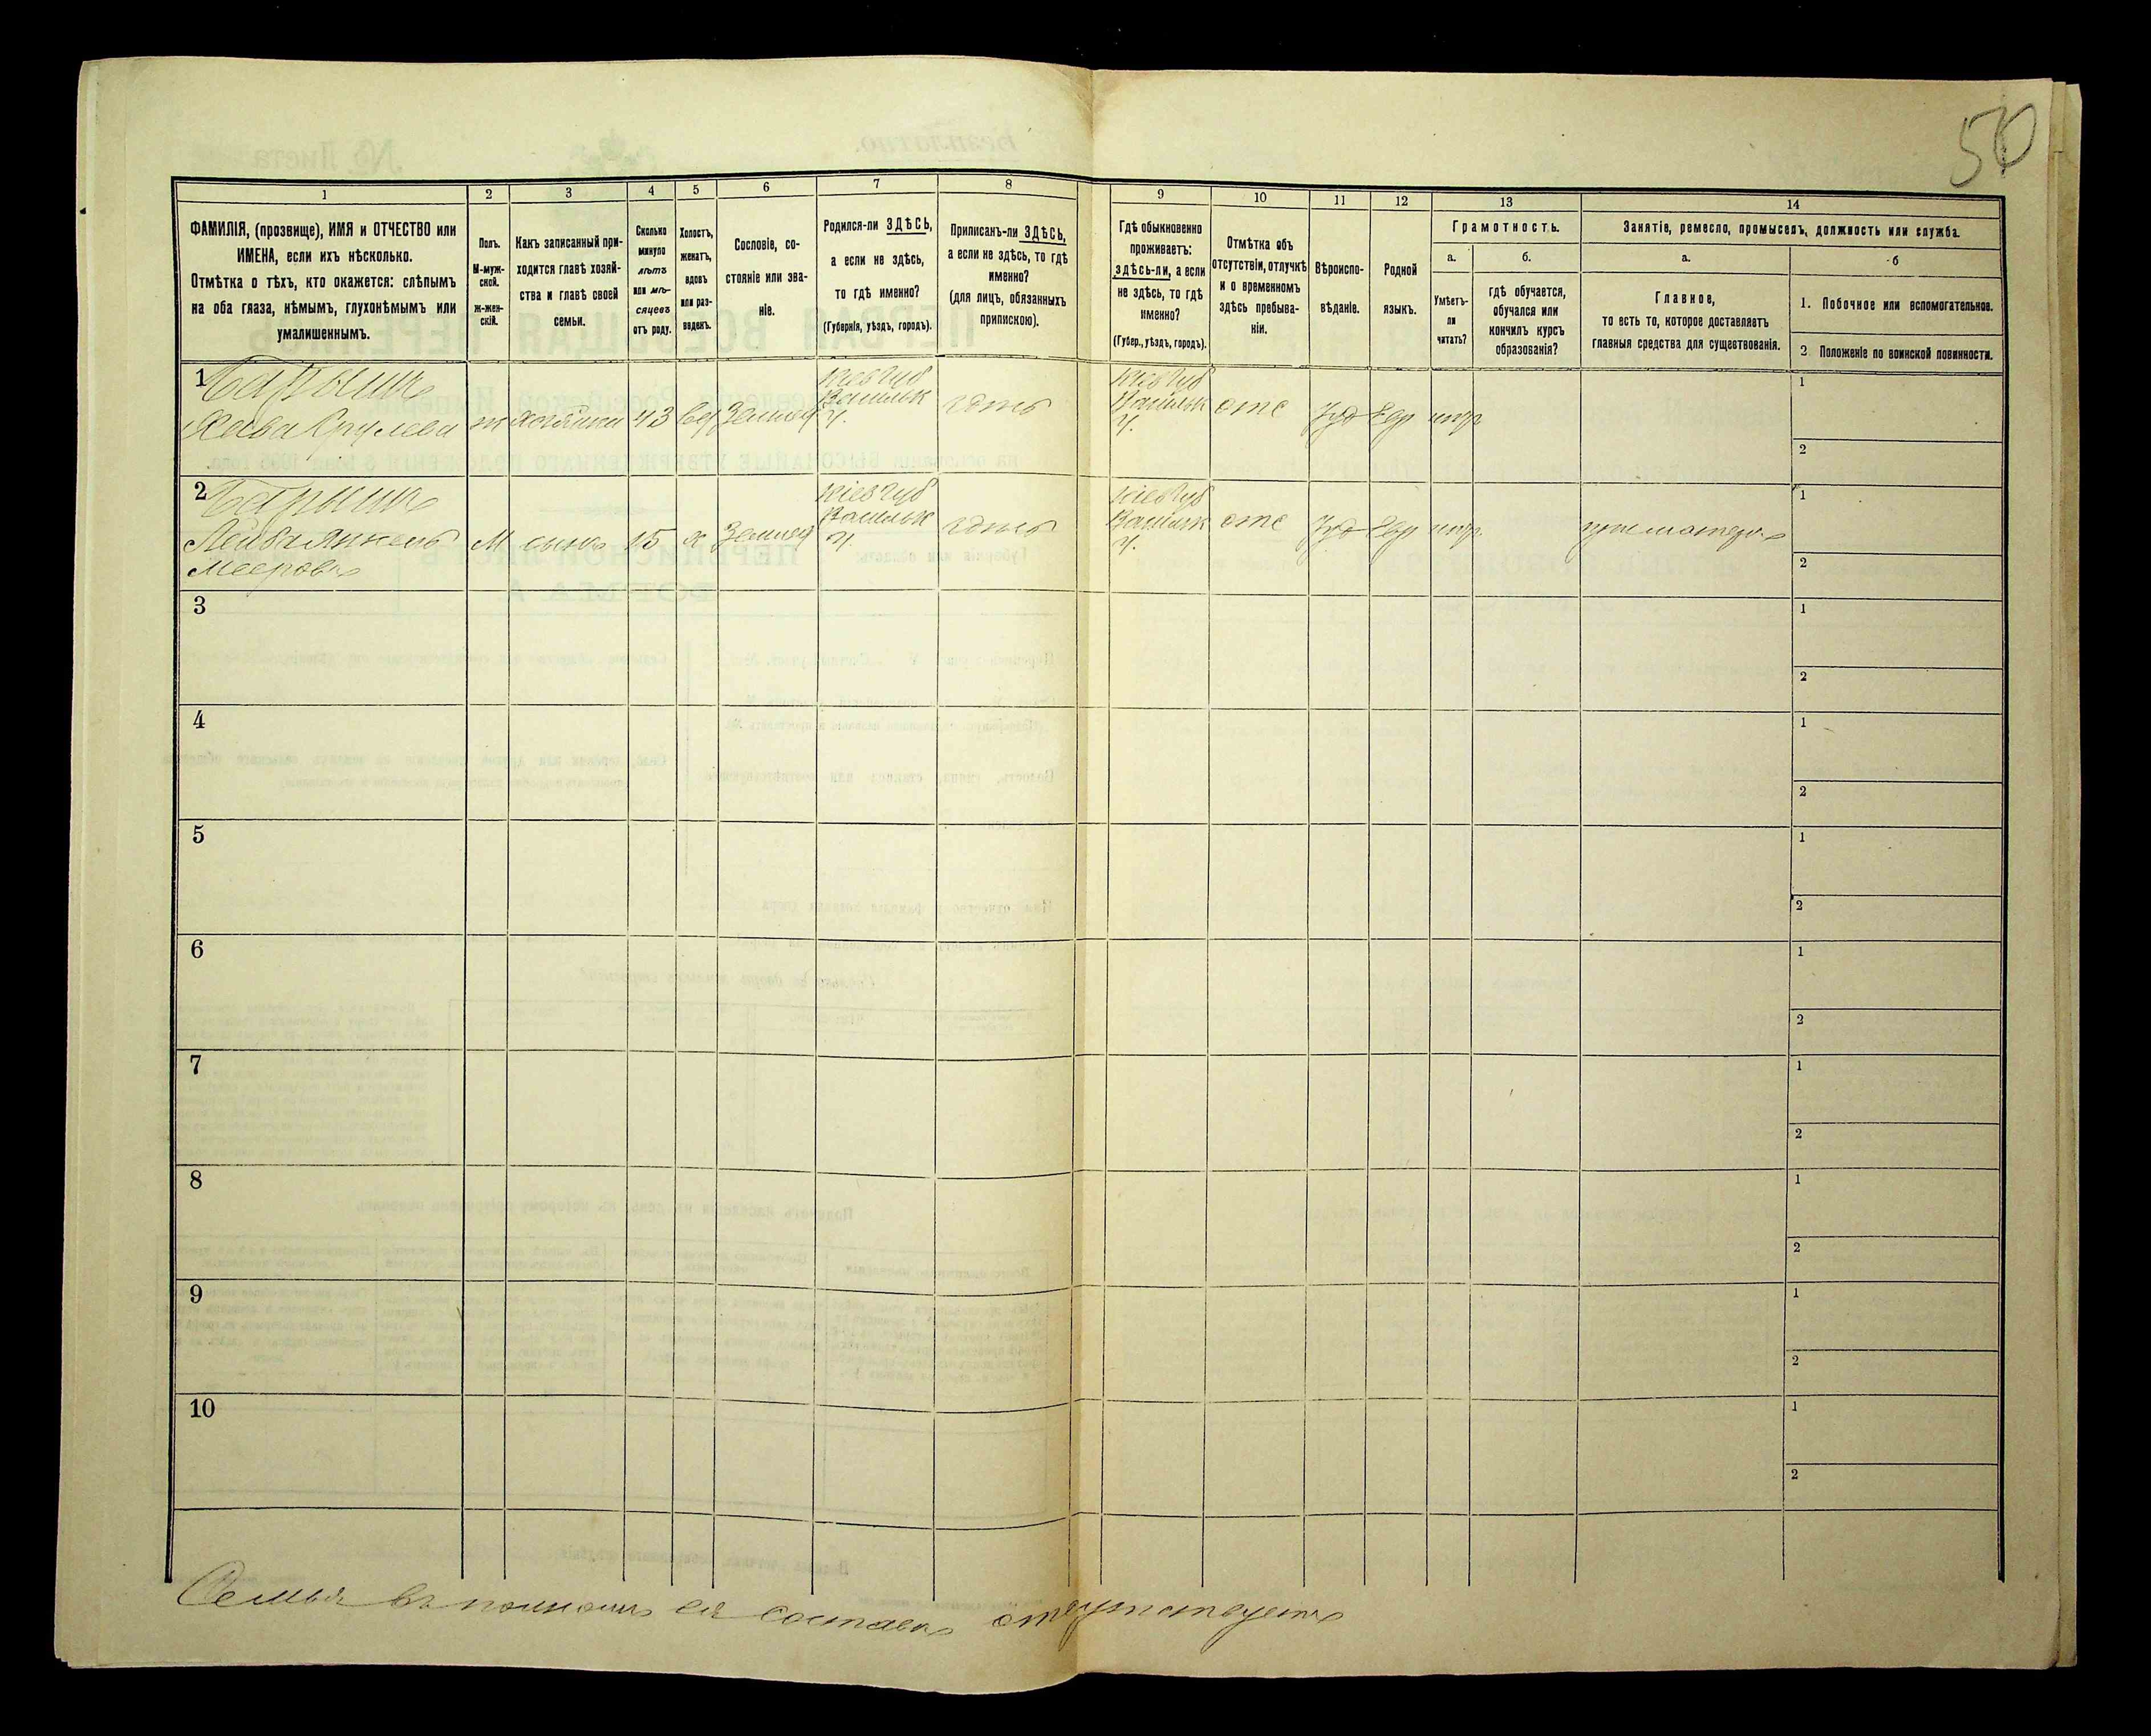 50
1
2
3
4
5
6
7
8
9
10
11
12
13
14
ФАМИЛІЯ, (прозвище), ИМЯ и ОТЧЕСТВО или
ИМЕНА, если ихъ нѣсколько.
Отмѣтка о тѣхъ, кто окажется: слѣпымъ
на оба глаза, нѣмымъ, глухонѣмымъ или
умалишеннымъ.
Полъ.
М-муж-
ской.
Ж-жен-
скій.
Какъ записанный при-
ходится главѣ хозяй-
ства и главѣ своей
семьи.
Сколько
минуло
лѣтъ
или мѣ-
сяцевъ
отъ роду.
Холостъ,
женатъ,
вдовъ
или раз-
веденъ.
Сословіе, со-
стояніе или зва-
ніе.
Родился-ли ЗДѢСЬ,
а если не здѣсь,
то гдѣ именно?
(Губернія, уѣздъ, городъ).
Приписанъ-ли ЗДѢСЬ,
а если не здѣсь, то гдѣ
именно?
(для лицъ, обязанныхъ
припискою).
Гдѣ обыкновенно
проживаетъ:
здѣсь-ли, а если
не здѣсь, то гдѣ
именно?
(Губер., уѣздъ, городъ).
Отмѣтка объ
отсутствіи, отлучкѣ
и о временномъ
здѣсь пребыва-
ніи.
Вѣроиспо-
вѣданіе.
Родной
языкъ.
Грамотность.
а.
б.
Умѣетъ-
ли
читать?
гдѣ обучается,
обучался или
кончилъ курсъ
образованія?
Занятіе, ремесло, промыселъ, должность или служба.
а.
б
Главное,
то есть то, которое доставляетъ
главныя средства для существованія.
1. Побочное или вспомогательное.
2. Положеніе по воинской повинности.
1
Хава Срулева
ж
хозяйка
43
вд
Землед
Кіев Губ
Васильк
У.
Кіев Губ
Васильк
У.
отс
Іуд
Евр
1
2
2
Лейба Янкель
Мееровъ
М
сынъ
15
х
Землед
Кіев Губ
Васильк
У.
Кіев Губ
Васильк
У.
отс
Іуд
Евр
при матери
1
2
3
1
2
4
1
2
5
1
2
6
1
2
7
1
2
8
1
2
9
1
2
10
1
2
Семья въ полномъ ея составѣ отсутствуетъ